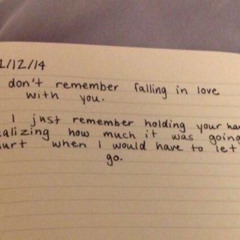 1/12/14
don't remember falling in love
with you.
I just remember holding your
how much it was going
when I would have to let
go.